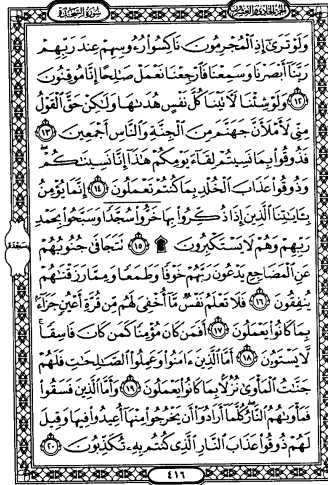 الجزء الحادي والعشرون
سورة السجدة
وَلَوْ تَرَىٰ إِذِ الْمُجْرِمُونَ نَاكِسُوا رُءُوسِهِمْ عِندَ رَبِّهِمْ
رَبَّنَا أَبْصَرْنَا وَسَمِعْنَا فَارْجِعْنَا نَعْمَلْ صَالِحًا إِنَّا مُوقِنُونَ
﴿١٢﴾ وَلَوْ شِئْنَا لَآتَيْنَا كُلَّ نَفْسٍ هُدَاهَا وَلَٰكِنْ حَقَّ الْقَوْلُ
مِنِّي لَأَمْلَأَنَّ جَهَنَّمَ مِنَ الْجِنَّةِ وَالنَّاسِ أَجْمَعِينَ ﴿١٣﴾
فَذُوقُوا بِمَا نَسِيتُمْ لِقَاءَ يَوْمِكُمْ هَٰذَا إِنَّا نَسِينَاكُمْ
وَذُوقُوا عَذَابَ الْخُلْدِ بِمَا كُنتُمْ تَعْمَلُونَ ﴿١٤﴾ إِنَّمَا يُؤْمِنُ
بِآيَاتِنَا الَّذِينَ إِذَا ذُكِّرُوا بِهَا خَرُّوا سُجَّدًا وَسَبَّحُوا بِحَمْدِ
رَبِّهِمْ وَهُمْ لَا يَسْتَكْبِرُونَ ۩ ﴿١٥﴾ تَتَجَافَىٰ جُنُوبُهُمْ
سجدة
عَنِ الْمَضَاجِعِ يَدْعُونَ رَبَّهُمْ خَوْفًا وَطَمَعًا وَمِمَّا رَزَقْنَاهُمْ
يُنفِقُونَ ﴿١٦﴾ فَلَا تَعْلَمُ نَفْسٌ مَّا أُخْفِيَ لَهُم مِّن قُرَّةِ أَعْيُنٍ جَزَاءً
بِمَا كَانُوا يَعْمَلُونَ ﴿١٧﴾ أَفَمَن كَانَ مُؤْمِنًا كَمَن كَانَ فَاسِقًا
لَّا يَسْتَوُونَ ﴿١٨﴾ أَمَّا الَّذِينَ آمَنُوا وَعَمِلُوا الصَّالِحَاتِ فَلَهُمْ
جَنَّاتُ الْمَأْوَىٰ نُزُلًا بِمَا كَانُوا يَعْمَلُونَ ﴿١٩﴾ وَأَمَّا الَّذِينَ فَسَقُوا
فَمَأْوَاهُمُ النَّارُ كُلَّمَا أَرَادُوا أَن يَخْرُجُوا مِنْهَا أُعِيدُوا فِيهَا وَقِيلَ
لَهُمْ ذُوقُوا عَذَابَ النَّارِ الَّذِي كُنتُم بِهِ تُكَذِّبُونَ ﴿٢٠﴾
٤١٦